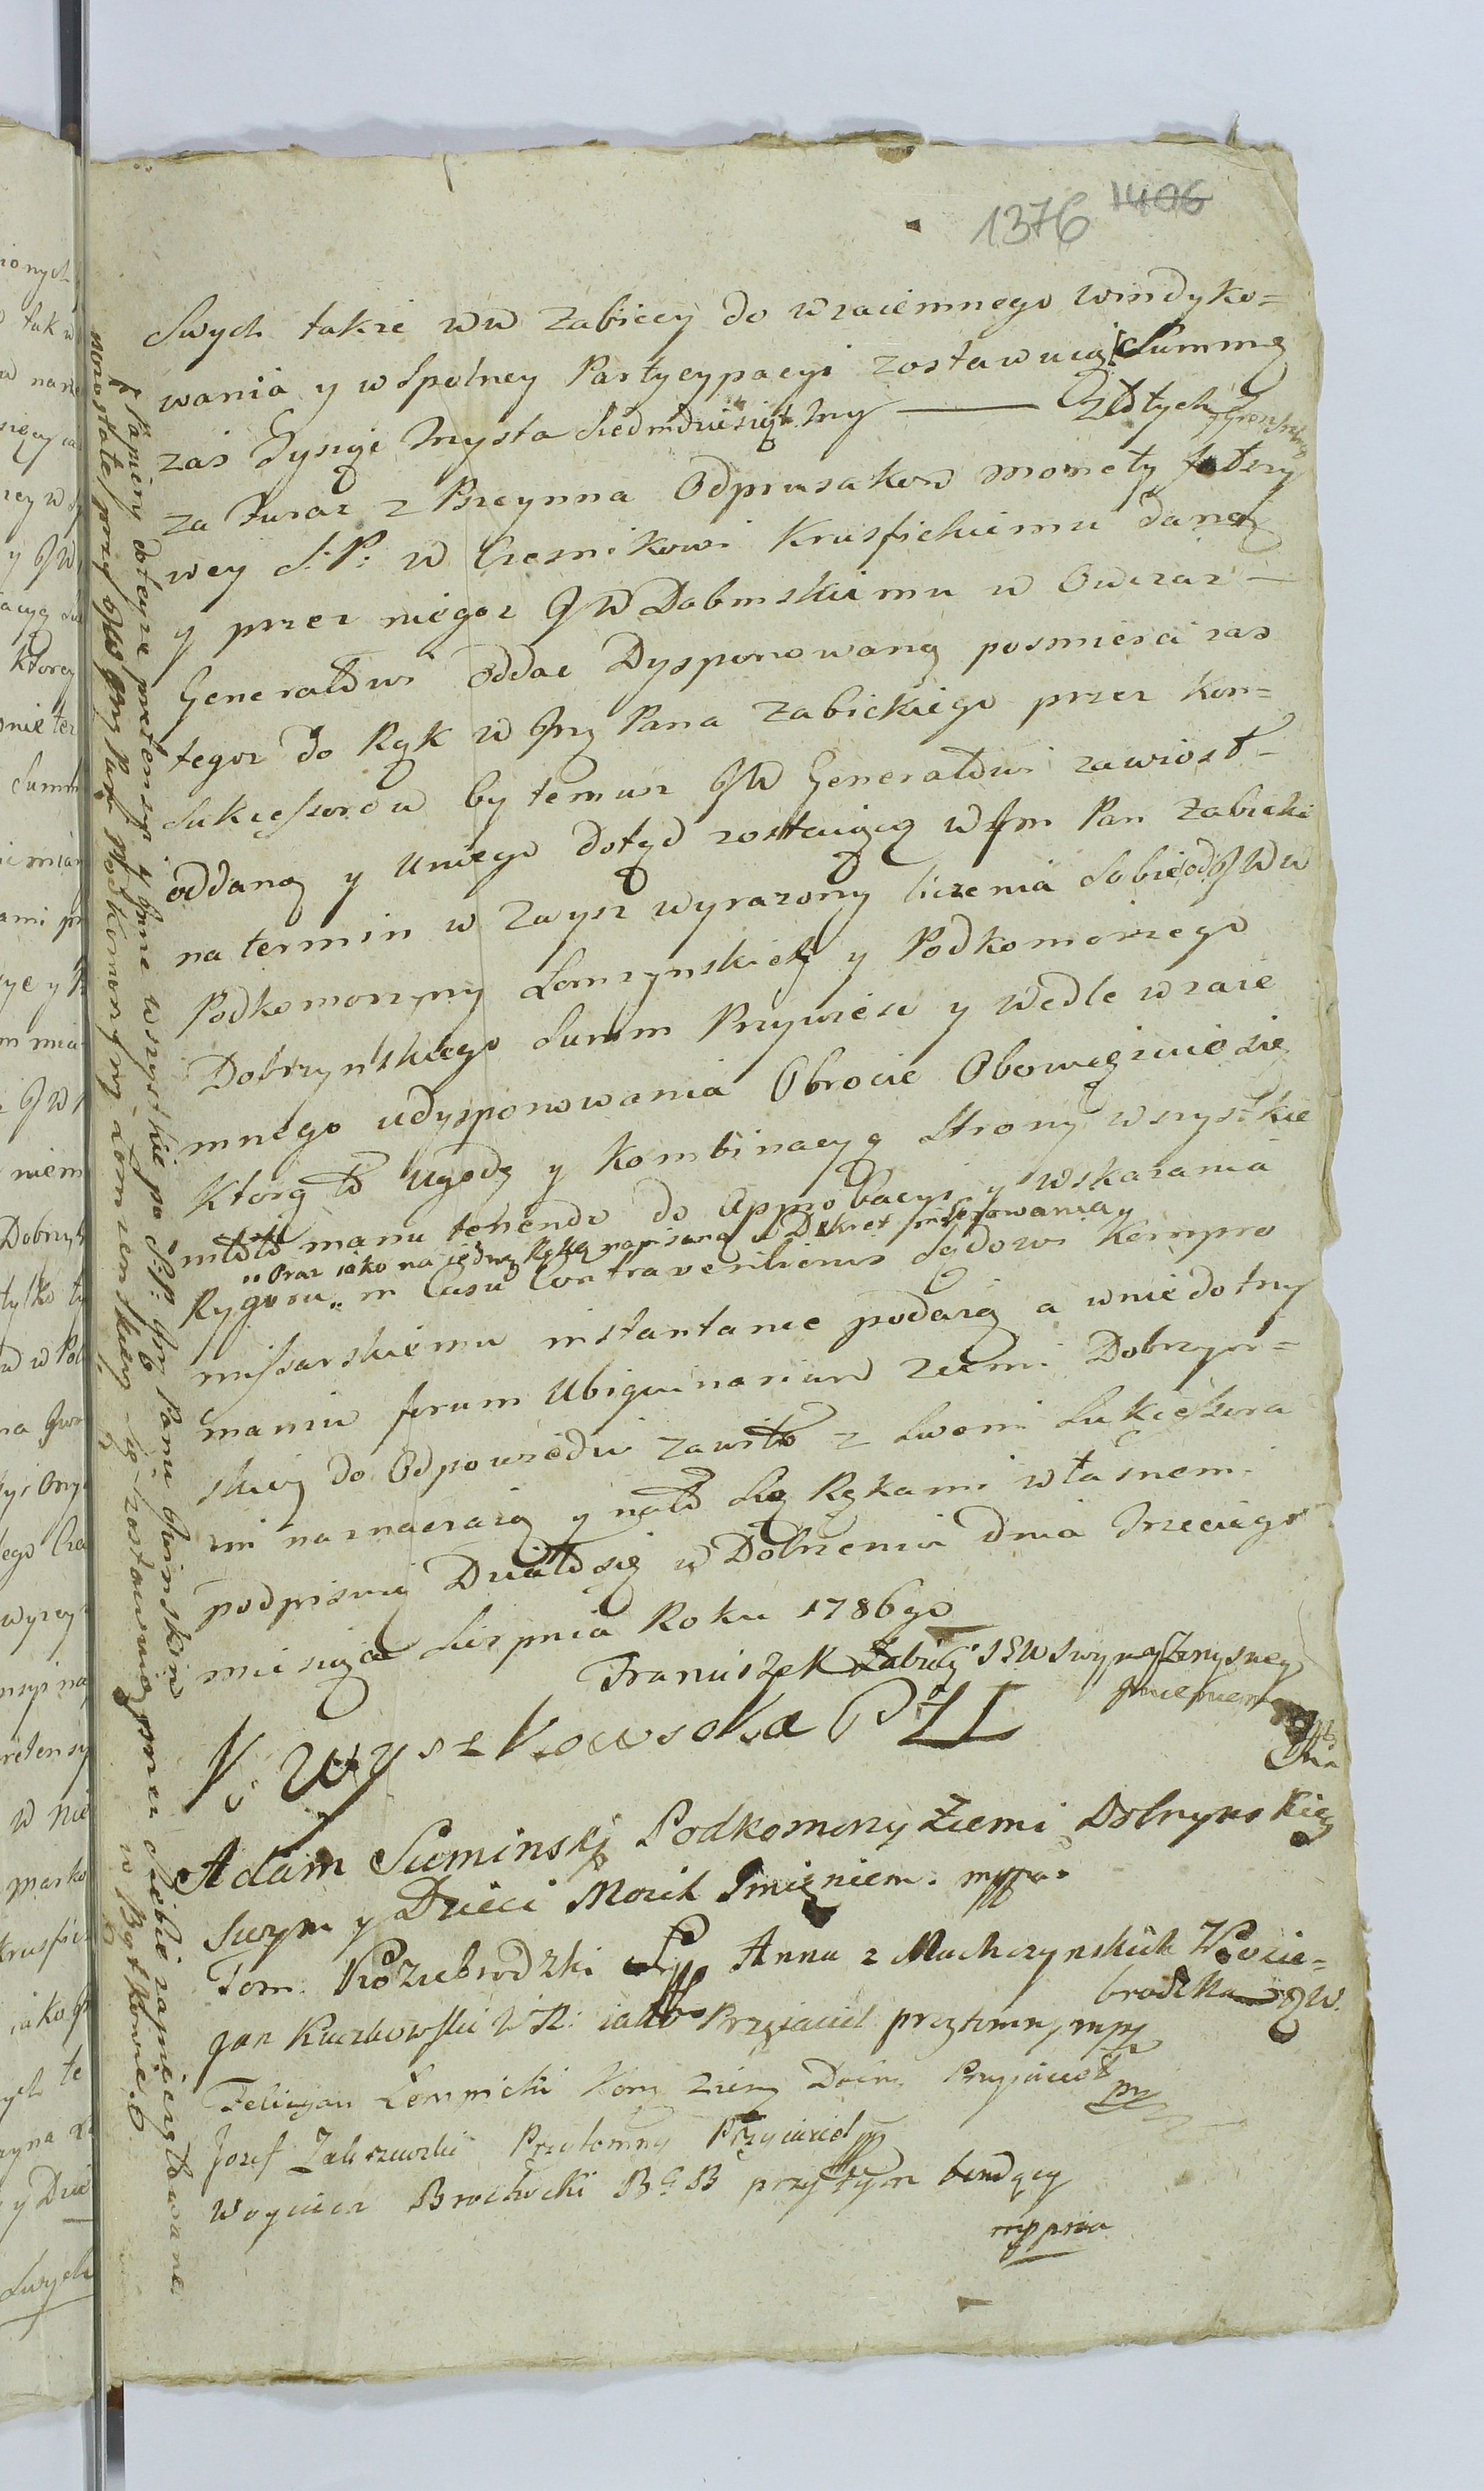 1376 1406
Swych takze WW Zabiccy do wzaiemnego windyko=
wania y wspolney Partycypacyi zostawuią Summę
zaś Tysiąc Trzysta Siedmdziesiąt Trzy — Złotych
za Turaz z Brzynna Odprusakow monety fałszy
wey S: P: W Czesnikowi Kruszfickiemu daną
y przez niegoz JW Dąbmskiemu w Owczas —
Generałowi oddać Dysponowaną po smierci zas
tegoz do Rąk W Jmę Pana Zabickiego przez Kon=
sukcessorow by temuz JW Generałowi zawiozł —
oddaną y u niego dotąd zostaiącą W Jm Pan Zabicki
na termin w Zwysz wyrazony liczenia Sobie od JWW
Podkomorzyny Łomzynskiey y Podkomorzego
Dobrzynskiego Summ Przywiesc y wedle wzaie
mnego udysponowania Obrocic Obowięzuie się
Ktorą to ugodę y Kombinacyą Strony wszystkie
manu tenendo do Approbacyi y wskazania
„ Oraz iako na iedną Rękę napisaną w Dekret inserowania
Rygoru „ in Casu Contraventionis Sądowi Kompro
missarskiemu instantanee podaią a w nie dotrzy
maniu forum Ubiquinarium Ziemi Dobrzyn=
skiey do Odpowiedzi zawito z Swemi Sukcessora
mi naznaczaią y na to Się Rękami własnemi
podpisuią Działo się w Dobrzeniu dnia Trzeciego
miesiąca Sierpnia Roku 1786go
Franciszek Zabicki
Imieniem
K: Wyszkowska P Z Ł
Adam Sumiński Podkomorzy Ziemi Dobrzynskiey
Swym y Dzieci Moich Imieniem. mppa.
Tom. Koziebrodzki Anna z Machczynskich Kozie=
brodzka
Jan Kuczkowski iako Przyiaciel przytomny mpp
Felicyan Łempicki Przyiaciel mp
Jozef Zaleszewski Przytomny Przyiaciel
Woyciech Brochocki B G B przytym bendący
mppria
Kamieny dotąd pretensyi y inne wszystkie po S: P: Jm Panu zapieczętowane
pozostałe przy JW Jmę Pani Podkomorzyny Łomzenskiey się zostawuią przez Siebie w Bytkowie